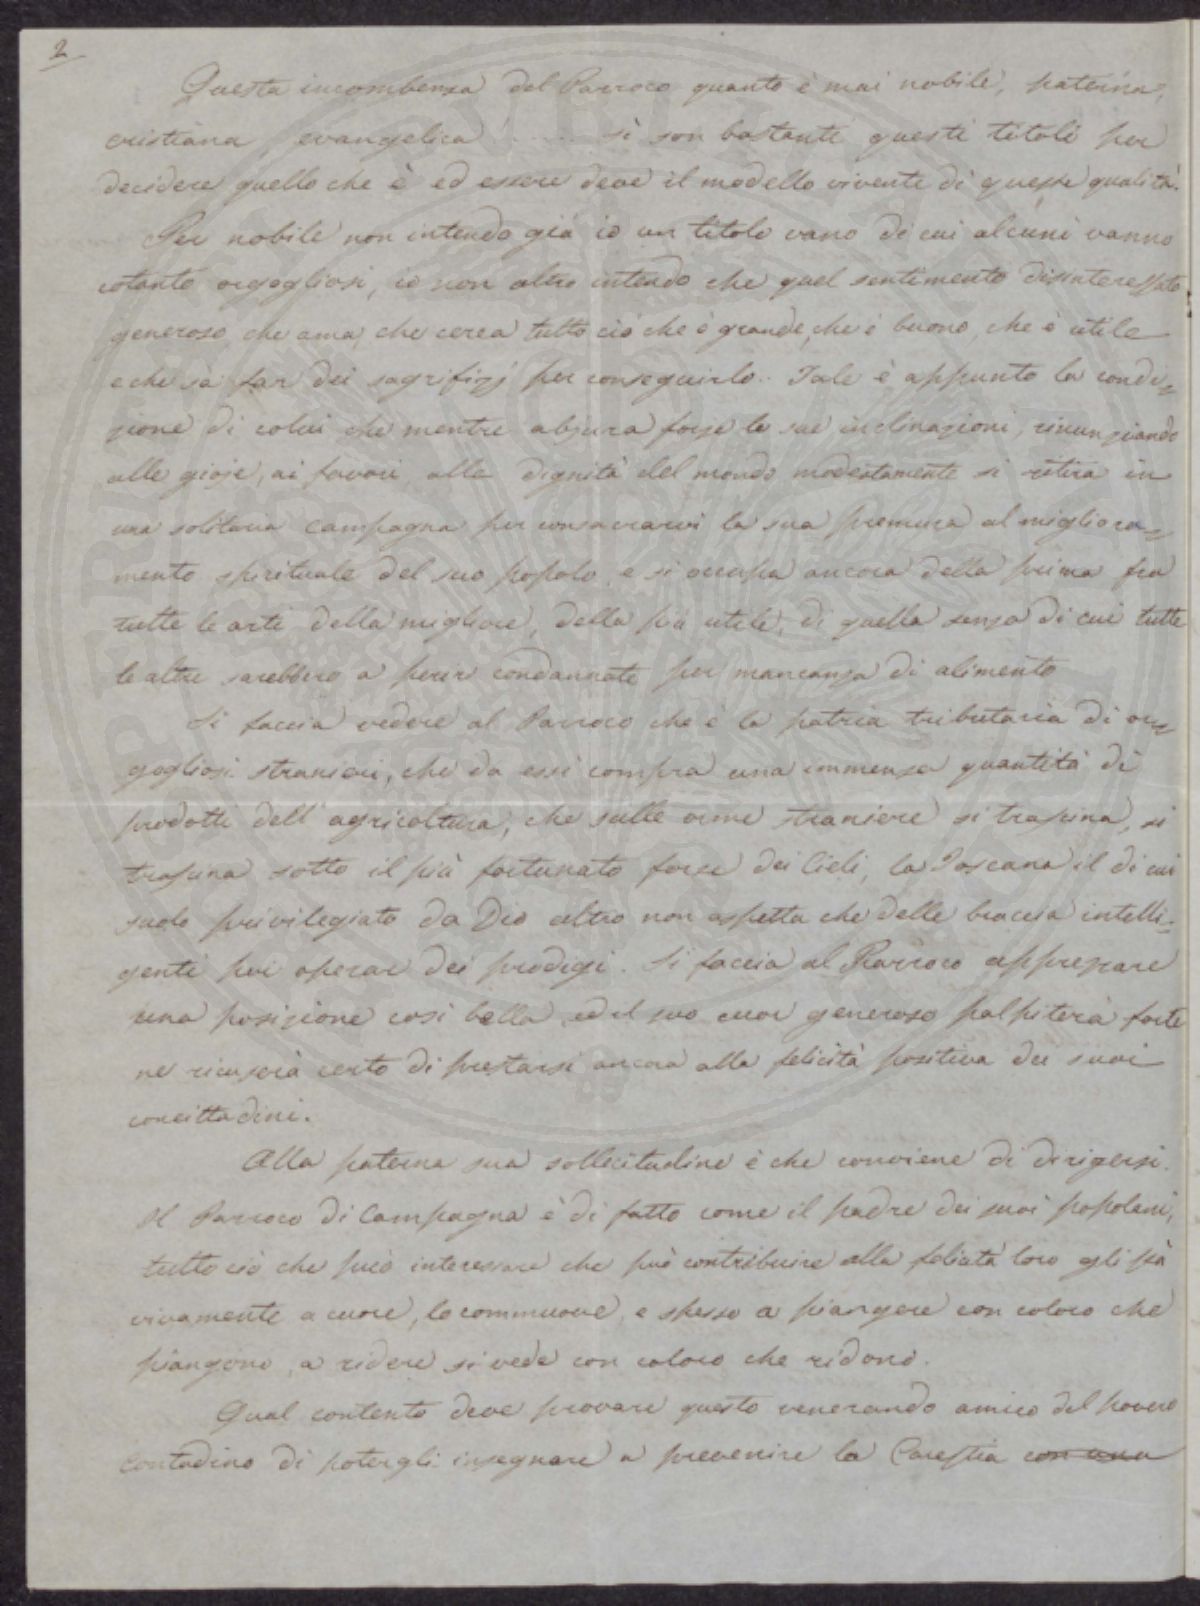 2
Questa incombenza del Parroco quanto è mai nobile, paterna,
cristiana, evangelica ........ si son bastanti questi titoli per
decidere quello che è ed essere deve il modello vivente di queste qualità.
Per nobile non intendo già io un titolo vano di cui alcuni vanno
cotanto orgogliosi, io non altro intendo che quel sentimento disinteressato
generoso, che ama, che cerca tutto ciò che è grande, che è buono, che è utile
e che sa far dei sagrifizj per conseguirlo. Tale è appunto la condi=
zione di colui che mentre abjura forse le sue inclinazioni, rinunziando
alle gioje, ai favori alle dignità del mondo modestamente si ritira in
una solitaria campagna per consacrarvi la sua premura al migliora=
mento spirituale del suo popolo, e si occupa ancora della prima fra
tutte le arti della migliore, della più utile, di quella senza di cui tutte
le altre sarebbero a perir condannate per mancanza di alimento
Si faccia vedere al Parroco che è la patria tributaria di or=
gogliosi stranieri, che da essi compra una immensa quantità di
prodotti dell'agricoltura, che sulle orme straniere si trascina, si
trascina sotto il più fortunato forse dei Cieli, la Toscana il di cui
suolo privilegiato da Dio altro non aspetta che delle braccia intelli=
genti per operar dei prodigi. Si faccia al Parroco apprezzare
una posizione così bella, ed il suo cuor generoso palpiterà forte
ne ricuserà certo di prestarsi ancora alla felicità positiva dei suoi
concittadini.
Alla paterna sua sollecitudine è che conviene di dirigersi.
Il Parroco di Campagna è di fatto come il padre dei suoi popolani,
tutto ciò che può interessare che può contribuire alla felicità loro gli stà
vivamente a cuore, lo commuove, e spesso a piangere con coloro che
piangono, a ridere si vede con coloro che ridono.
Qual contento deve provare questo venerando amico del povero
Contadino di potergli insegnare a prevenire la Carestia con una